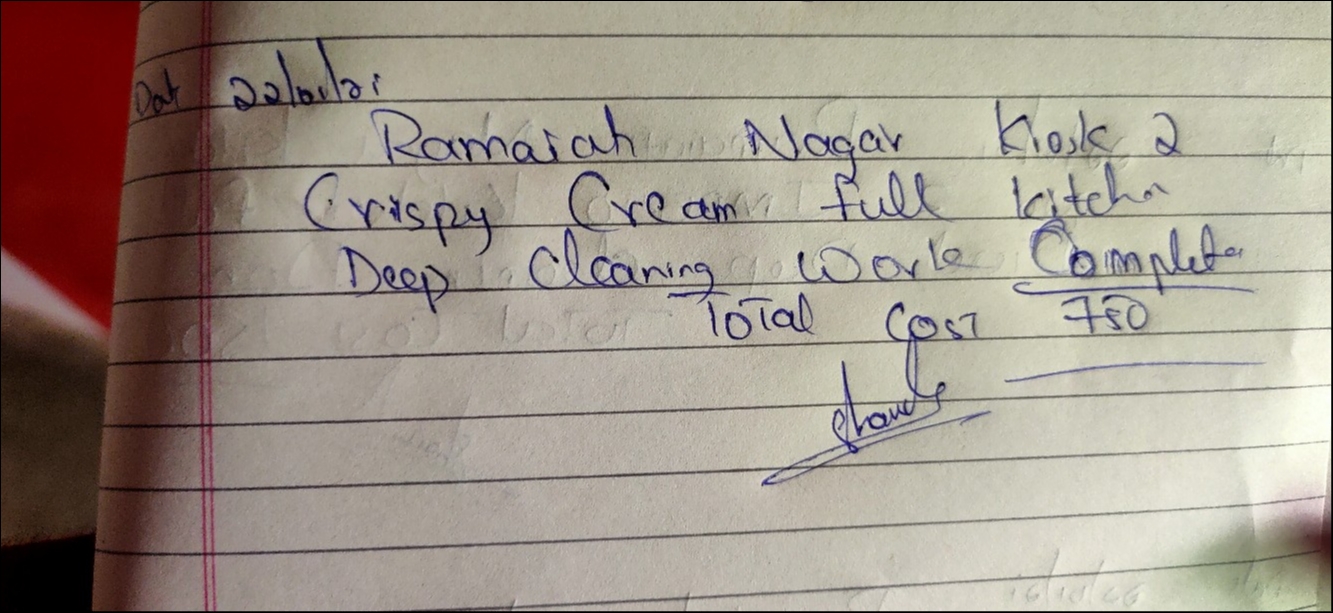 Dat 22/01/21
Ramaiah Nagar Kiosk 2
Crispy Cream full kitchn
Deep Cleaning Work Complete
Total Cost 750